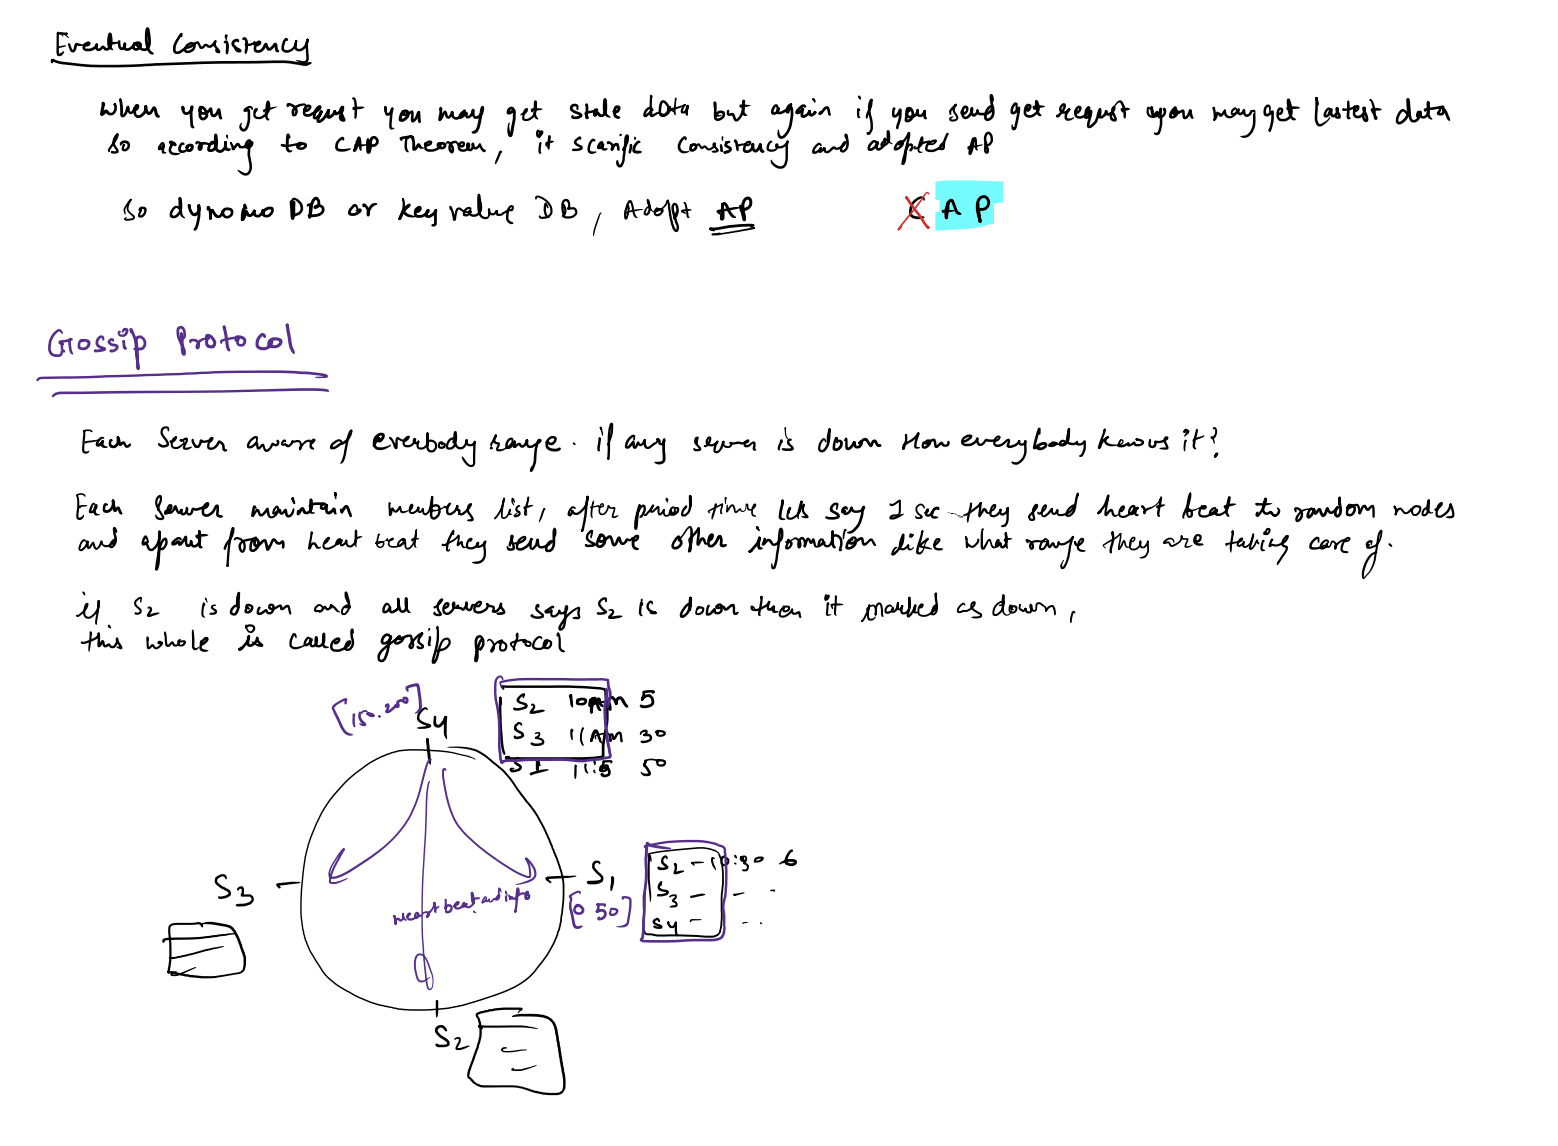 Eventual Consistency
When you get requst you may get stale data but again if you send get requst again you may get lastest data
so according to CAP Theorem, it scarific consistency and adopted AP
So dynomo DB or key value DB, Adopt AP
C A P
Gossip Protocol
Each Server aware of everbody range. if any server is down How everybody knows it?
Each server maintain members list, after period time lets say 1 sec they send heart beat to random nodes
and apart from heart beat they send some other information like what range they are taking care of.
if S2 is down and all servers says S2 is down then it marked as down,
this whole is called gossip protocol
[150.200]
S4
S2 10Am 5
S3 11Am 30
S1 11:5 50
S3
S1
[0 50]
S2 - 10:30 6
S3 - -
S4 -
Heart beat and info
S2